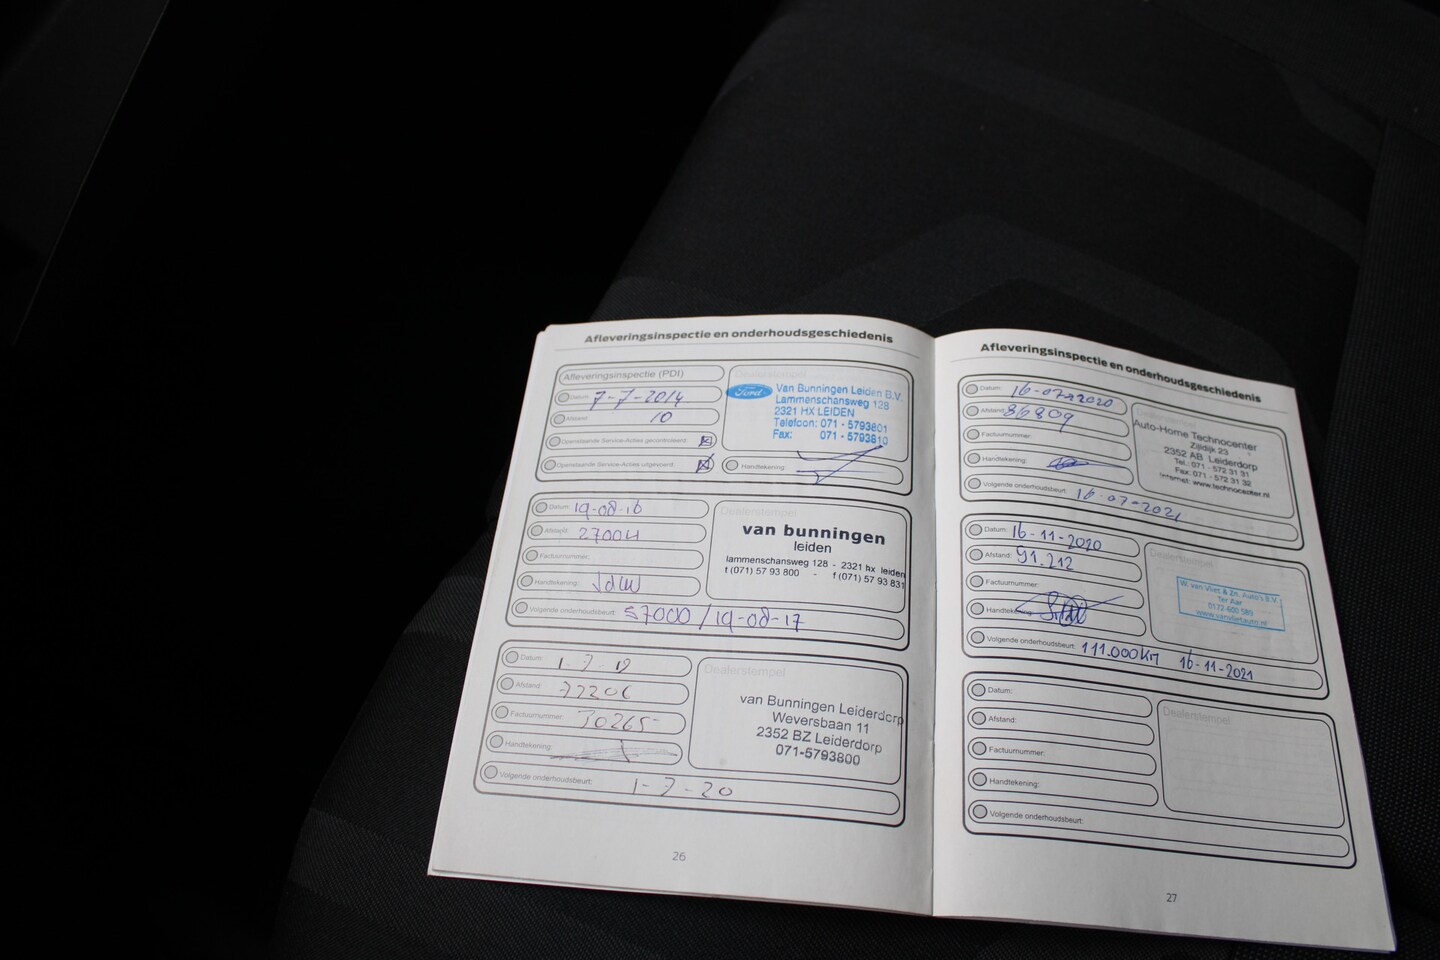 Afleveringsinspectie en onderhoudsgeschiedenis
Afleveringsinspectie (PDI)
Datum: 7-7-2014
Afstand: 10
Openstaande Service-Acties gecontroleerd:
Openstaande Service-Acties uitgevoerd:
Dealerstempel
Ford
Van Bunningen Leiden B.V.
Lammenschansweg 128
2321 HX LEIDEN
Telefoon: 071 - 5793801
Fax: 071 - 5793810
Handtekening:
Datum: 19-08-16
Afstand: 27004
Factuurnummer:
Handtekening:
Volgende onderhoudsbeurt: 57000 / 19-08-17
Dealerstempel
van bunningen
leiden
lammenschansweg 128 - 2321 hx leiden
t (071) 57 93 800 - f (071) 57 93 831
Datum: 1-7-19
Afstand: 77206
Factuurnummer: 70265
Handtekening:
Volgende onderhoudsbeurt: 1-7-20
Dealerstempel
van Bunningen Leiderdorp
Weversbaan 11
2352 BZ Leiderdorp
071-5793800
26
Afleveringsinspectie en onderhoudsgeschiedenis
Datum: 16-07-2020
Afstand: 86809
Factuurnummer:
Handtekening:
Volgende onderhoudsbeurt: 16-07-2021
Dealerstempel
Auto-Home Technocenter
Zijldijk 23
2352 AB Leiderdorp
Tel.: 071 - 572 31 31
Fax: 071 - 572 31 32
Internet: www.technocenter.nl
Datum: 16-11-2020
Afstand: 91.212
Factuurnummer:
Handtekening:
Volgende onderhoudsbeurt: 111.000KM 16-11-2021
Dealerstempel
W. van Vliet & Zn. Auto's B.V.
Ter Aar
0172-600 589
www.vanvlietauto.nl
Datum:
Afstand:
Factuurnummer:
Handtekening:
Volgende onderhoudsbeurt:
Dealerstempel
27